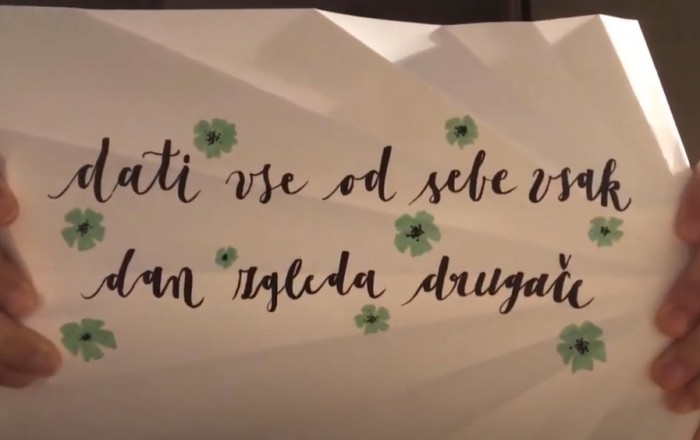 dati vse od sebe vsak
dan zgleda drugače